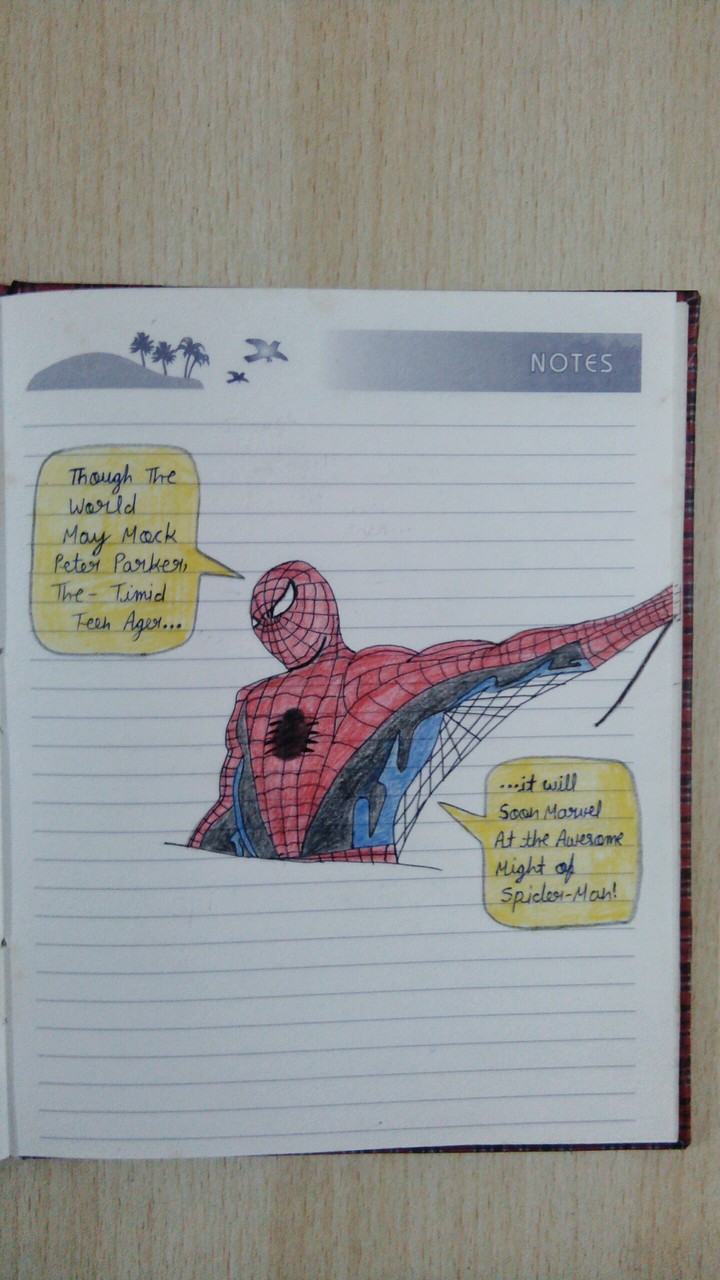 NOTES
Though The
World
May Mock
Peter Parker,
The- Timid
Teen Ager...
...it will
Soon Marvel
At the Awesome
Might of
Spider-Man!